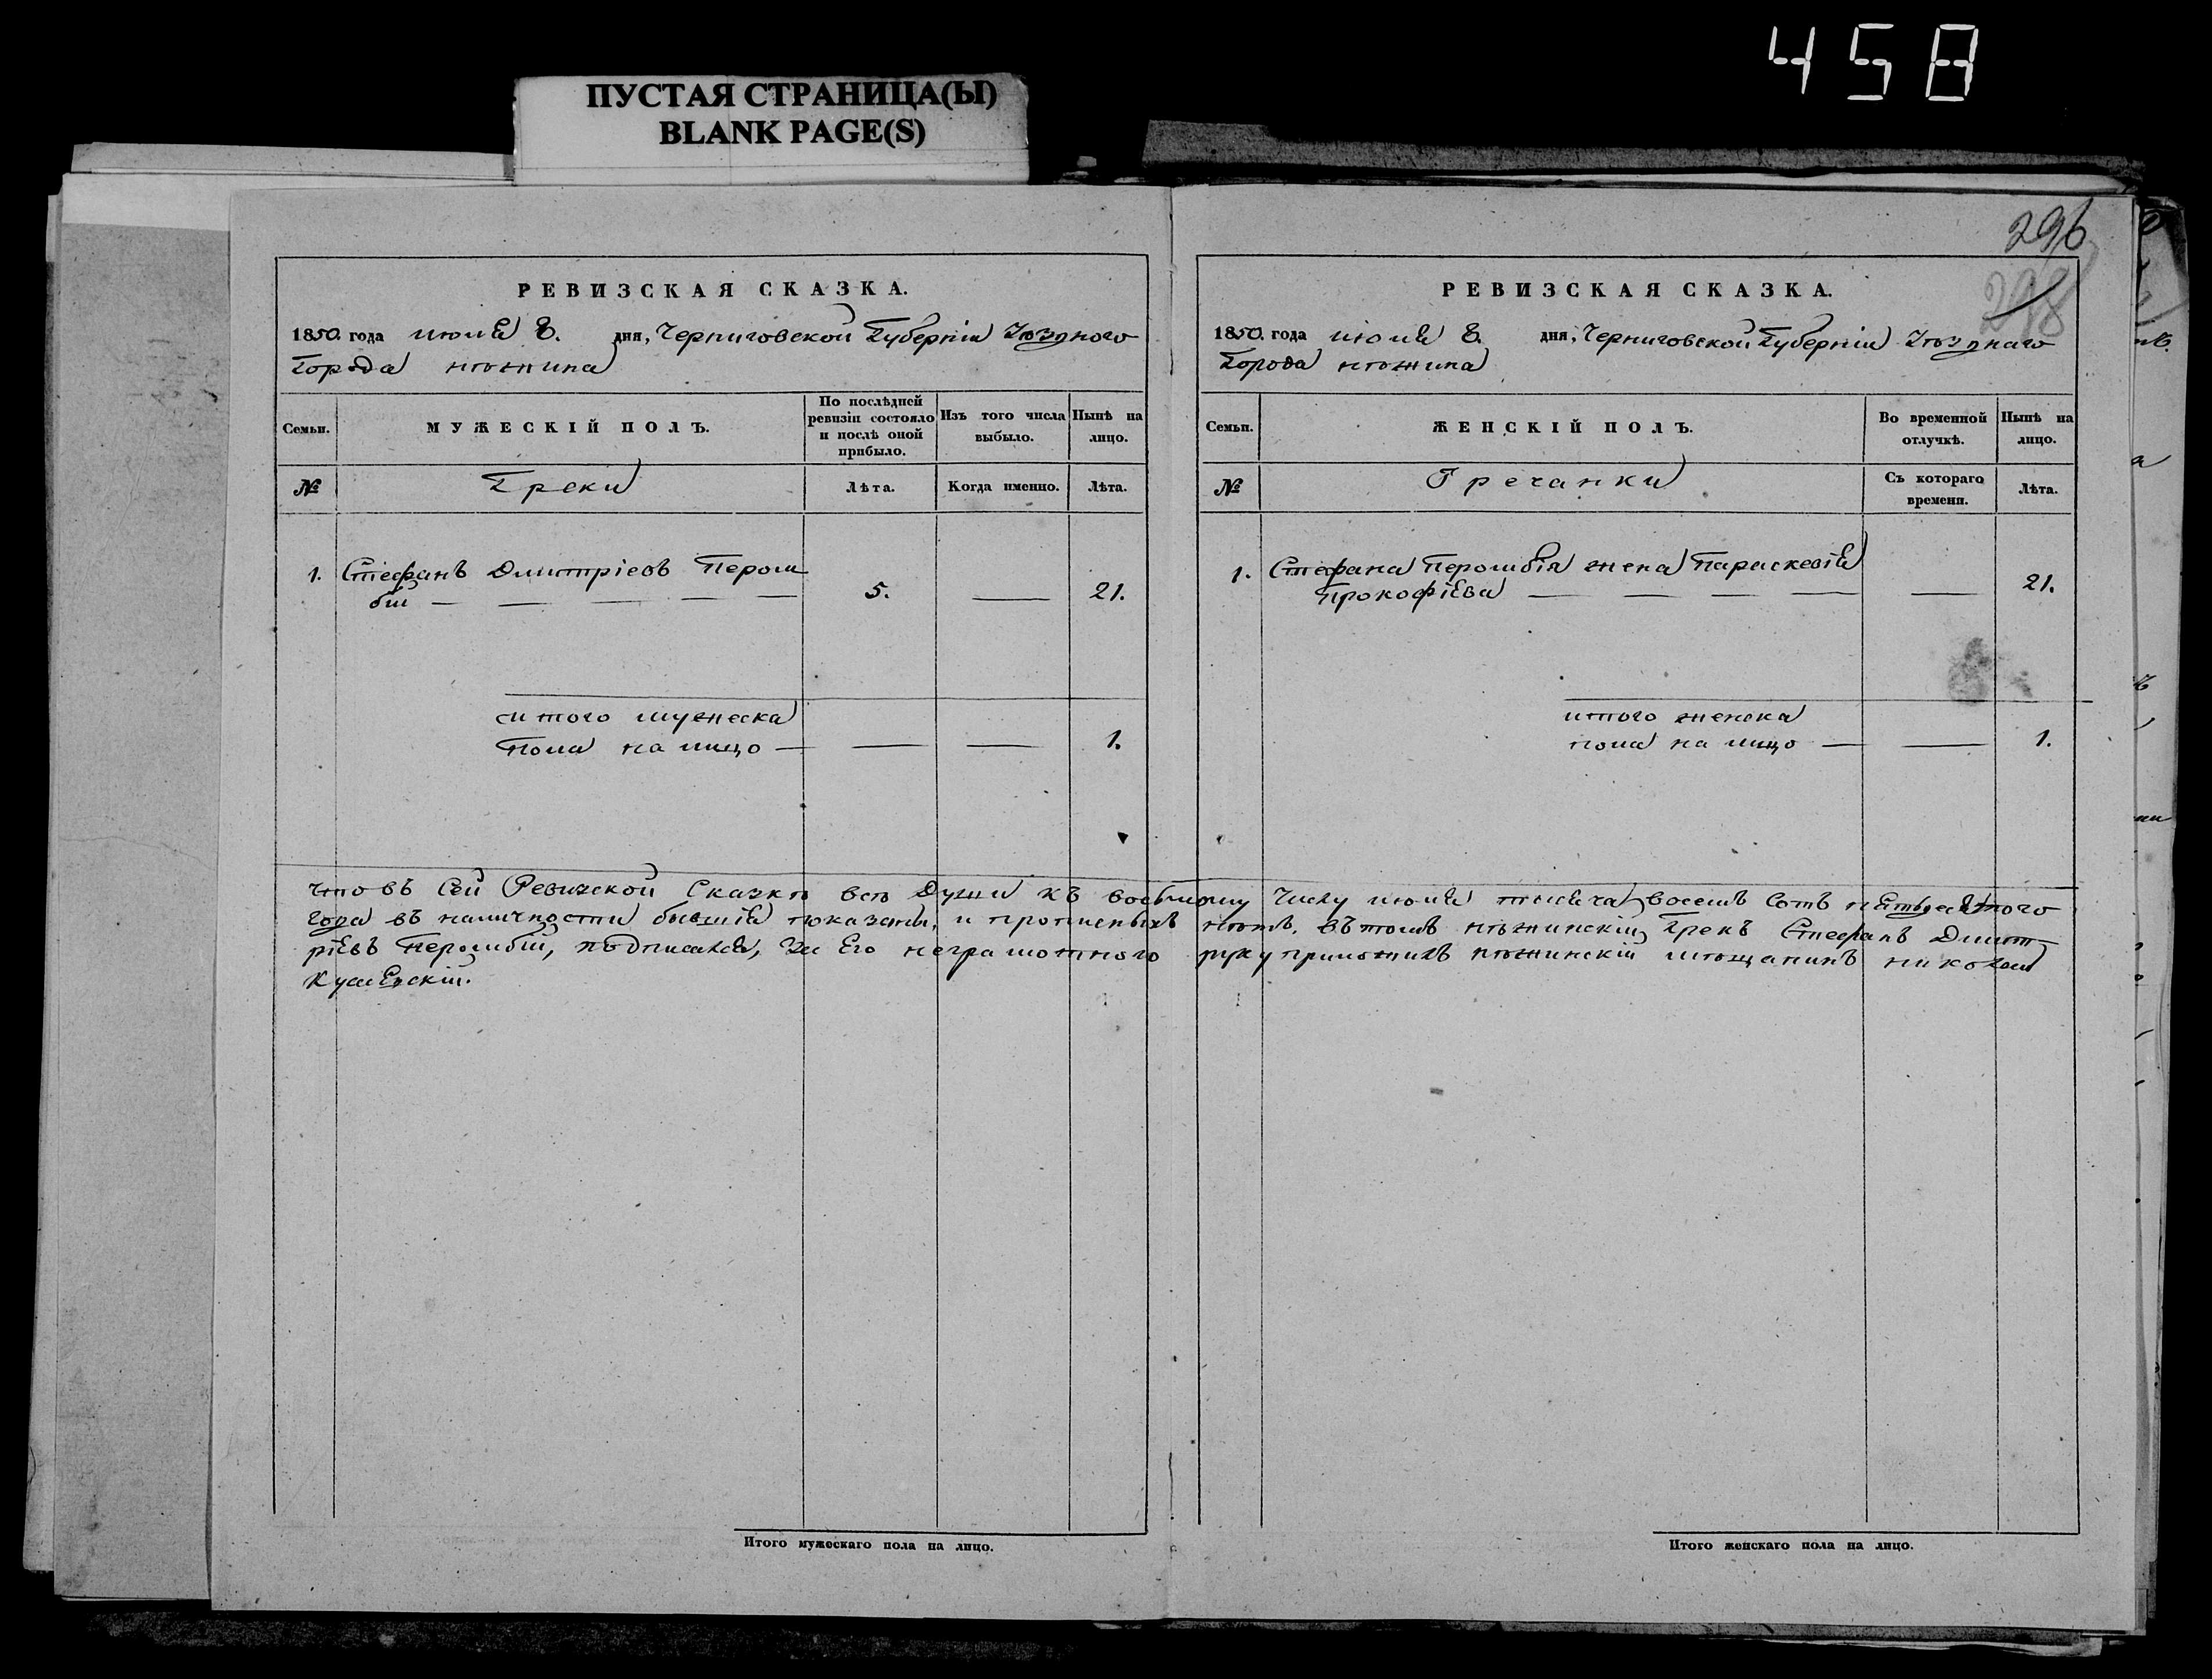 458
ПУСТАЯ СТРАНИЦА(Ы)
BLANK PAGE(S)
296
298
РЕВИЗСКАЯ СКАЗКА.
1850. года июля 8. дня, Черниговской Губерніи Уѣзднаго
Города нѣжина
Семьи.
МУЖЕСКІЙ ПОЛЪ.
По послѣдней
ревизіи состояло
и послѣ оной
прибыло.
Изъ того числа
выбыло.
Нынѣ на
лицо.
№
Греки
Лѣта.
Когда именно.
Лѣта.
1. Стефанъ Дмитріевъ Пером
бій — — — — — 5. — 21.
итого мужеска
пола на лицо — — — 1.
РЕВИЗСКАЯ СКАЗКА.
1850. года июля 8. дня, Черниговской Губерніи Уѣзднаго
Города нѣжина
Семьи.
ЖЕНСКІЙ ПОЛЪ.
Во временной
отлучкѣ.
Нынѣ на
лицо.
№
Гречанки
Съ котораго
времени.
Лѣта.
1. Стефана Перомбія жена Параскевія
Прокофіева — — — — — 21.
итого женска
пола на лицо — — 1.
что въ Сей Ревизской Сказкѣ всѣ Души къ восьмому Числу июля тысяча восемъ Сотъ пятьдесятого
года въ наличности бывшія показаны, и прописныхъ нѣтъ. въ томъ нѣжинскій Грекъ Стефанъ Дмит-
ріевъ Перомбій, подписался, За Его неграмотного руку приложилъ нѣжинскій мѣщанинъ николай
Итого мужескаго пола на лицо.
Итого женскаго пола на лицо.